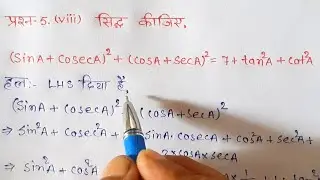 प्रश्न-5.(viii) सिद्ध कीजिए.
(SinA+CosecA)²+(CosA+SecA)²=7+tan²A+Cot²A
हल:- LHS दिया है
(SinA+CosecA)² (CosA+SecA)²
⇒ Sin²A+Cosec²A+ SinA.CosecA+Cos²A+Sec²A+
2×CosA×SecA
⇒ Sin²A+Cos²A